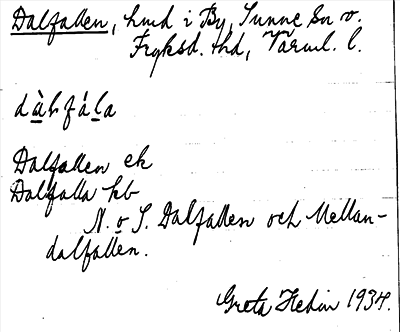 Dalfallen, hmd i By, Sunne Sn o.
Fryksd. hd, Värml. l.
dàlfála
Dalfallen ek
Dalfalla kb
N. o S. Dalfallen och Mellan-
dalfallen.
Greta Hedin 1934.